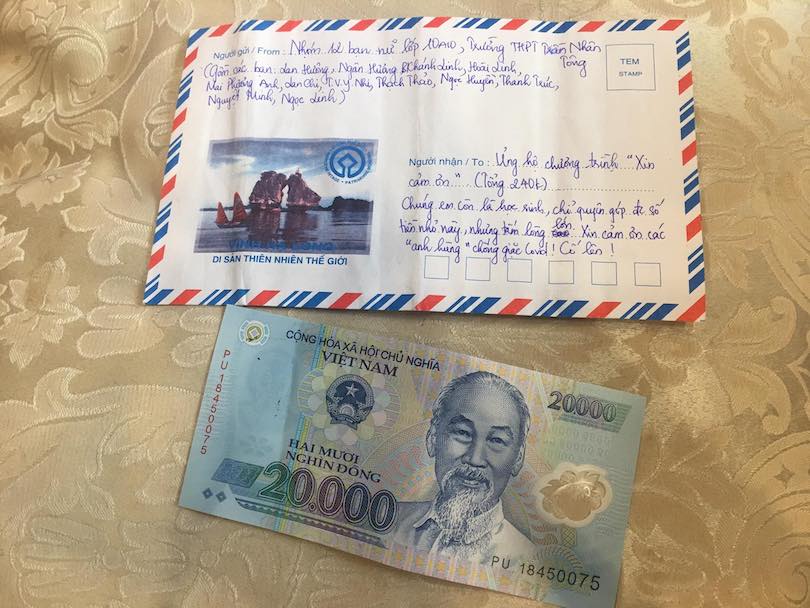 Người gửi / From : Nhóm 12 bạn nữ lớp 10A10, Trường THPT Trần Nhân Tông
(Gồm các bạn: Lan Hương, Ngân Hương, Khánh Linh, Hoài Linh,
Mai Phương Anh, Lan Chi, T.V.Y Nhi, Thạch Thảo, Ngọc Huyền, Thanh Trúc,
Nguyệt Minh, Ngọc Linh)
TEM
STAMP
Người nhận / To : Ủng hộ chương trình "Xin
cảm ơn" (Tổng 240k)
Chúng em còn là học sinh, chỉ quyên góp đc số
tiền nhỏ này, nhưng tấm lòng lớn. Xin cảm ơn các
"anh hùng" chống giặc Covid! Cố lên !
VỊNH HẠ LONG
DI SẢN THIÊN NHIÊN THẾ GIỚI
CỘNG HÒA XÃ HỘI CHỦ NGHĨA
VIỆT NAM
PU 18450075
20000
HAI MƯƠI
NGHÌN ĐỒNG
20.000
PU 18450075